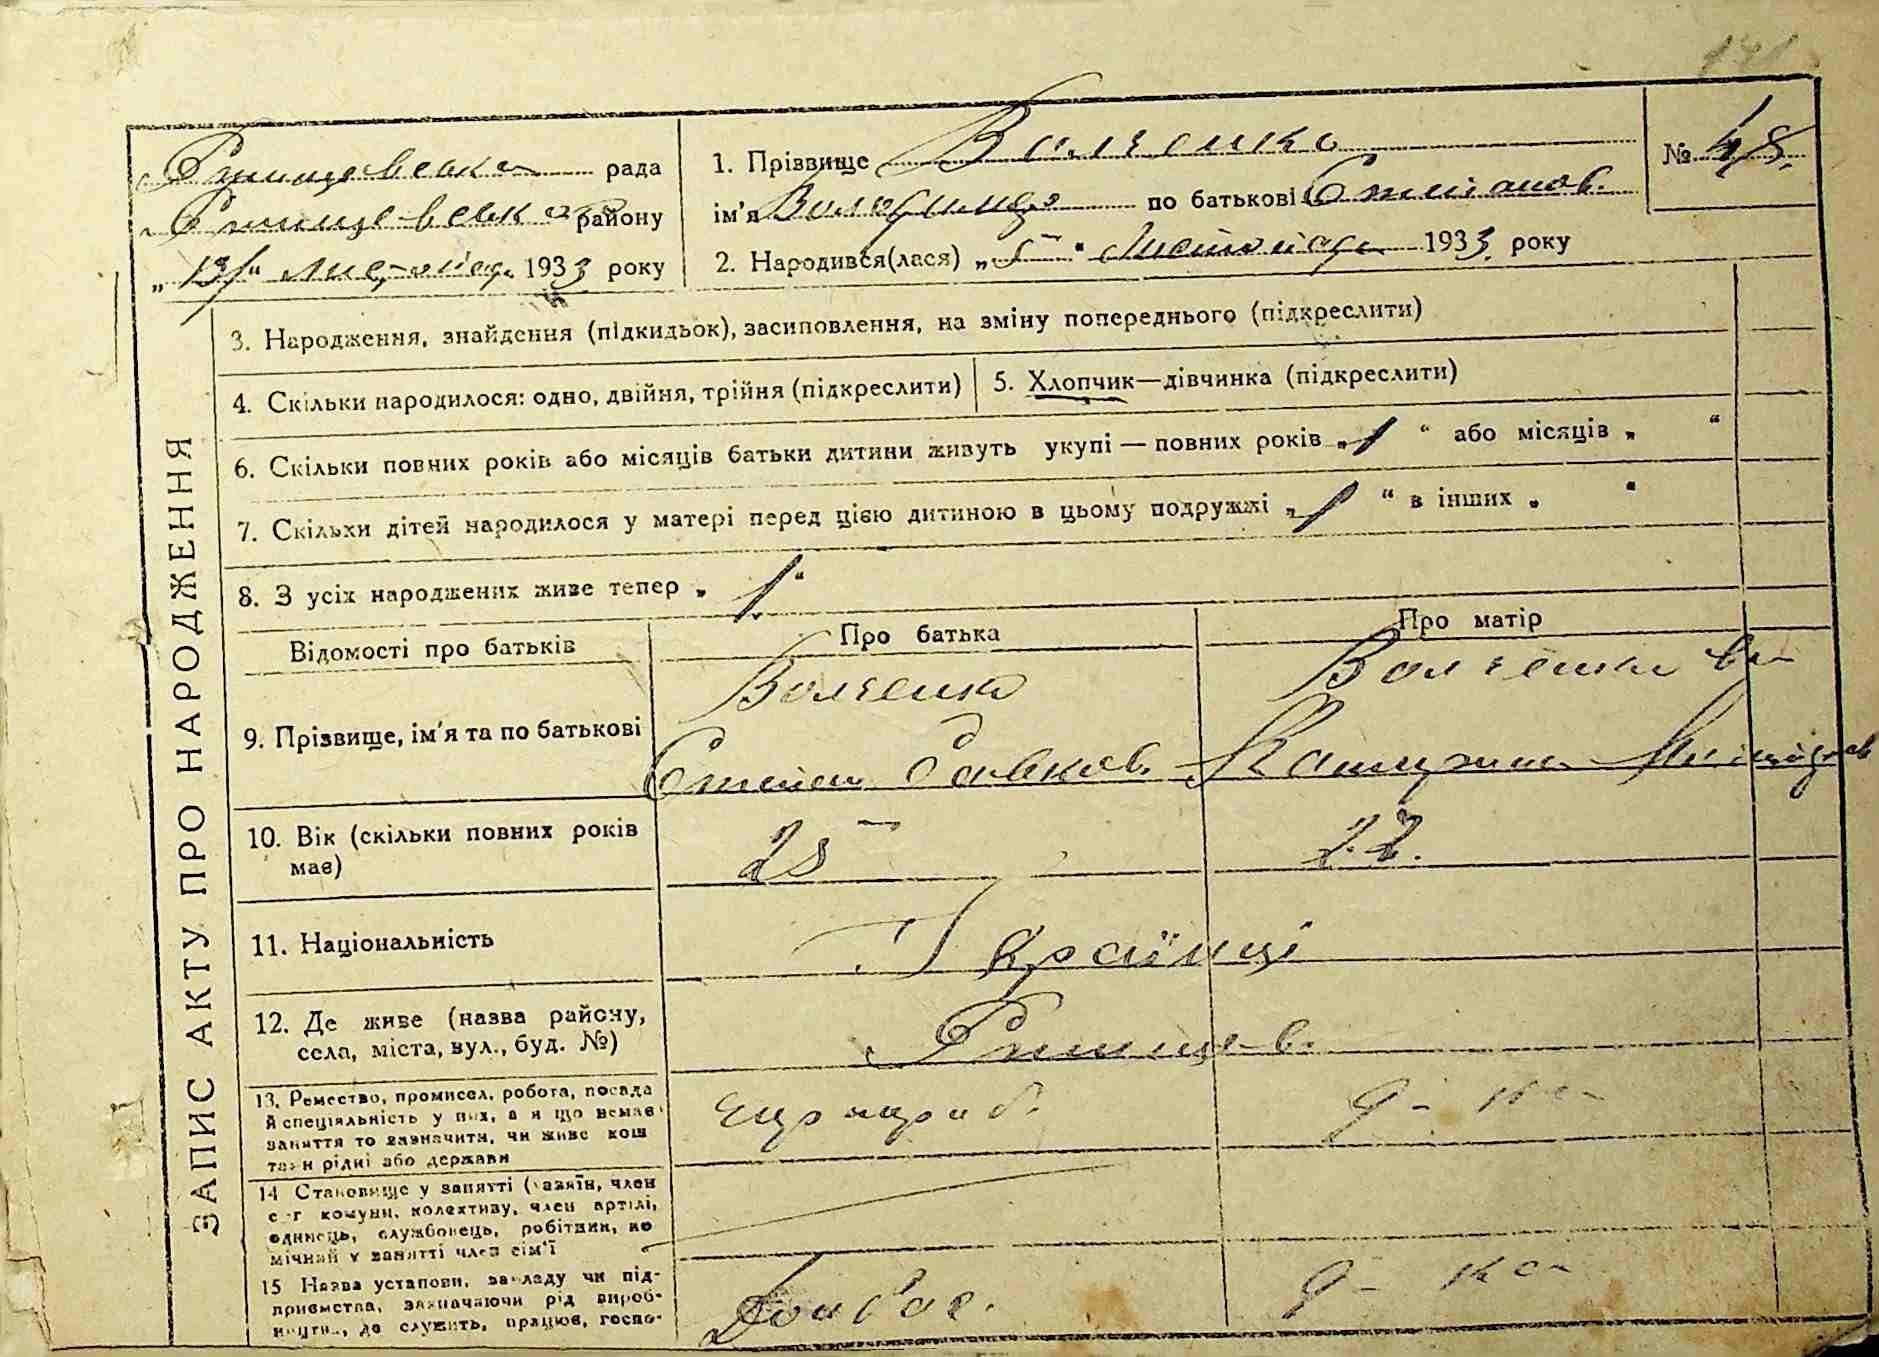 171
Ртищевська рада
Ртищевськ району
„13" Листопад. 1933 року
1. Прізвище Волченко
ім'я Володимер по батькові Степанов.
2. Народився(лася) „5" Листопада 1933 року
№ 48.
ЗАПИС АКТУ ПРО НАРОДЖЕННЯ
3. Народження, знайдення (підкидьок), засиновлення, на зміну попереднього (підкреслити)
4. Скільки народилося: одно, двійня, трійня (підкреслити)
5. Хлопчик—дівчинка (підкреслити)
6. Скільки повних років або місяців батьки дитини живуть укупі — повних років „1" або місяців „ "
7. Скільки дітей народилося у матері перед цією дитиною в цьому подружжі „1" в інших „ "
8. З усіх народжених живе тепер „1"
Відомості про батьків
Про батька
Про матір
9. Прізвище, ім'я та по батькові
Волченко
Степан
Волченкова
Катерина
10. Вік (скільки повних років має)
25
22.
11. Національність
Українці
12. Де живе (назва району,
села, міста, вул., буд. №)
Ртищев.
13. Ремество, промисел, робота, посада
й спеціяльність у них, а я що немає
заняття то зазначити, чи живе кош
тами рідні або держави
чорнороб.
д-ка
14 Становище у занятті (хазяїн, член
с-г комуни, колективу, член артілі,
одинець, службовець, робітник, по
мічний у занятті член сім'ї
15 Назва установи, закладу чи під-
приємства, зазначаючи рід вироб-
ництва, де служить, працює, госпо-
Донбас.
д-ка